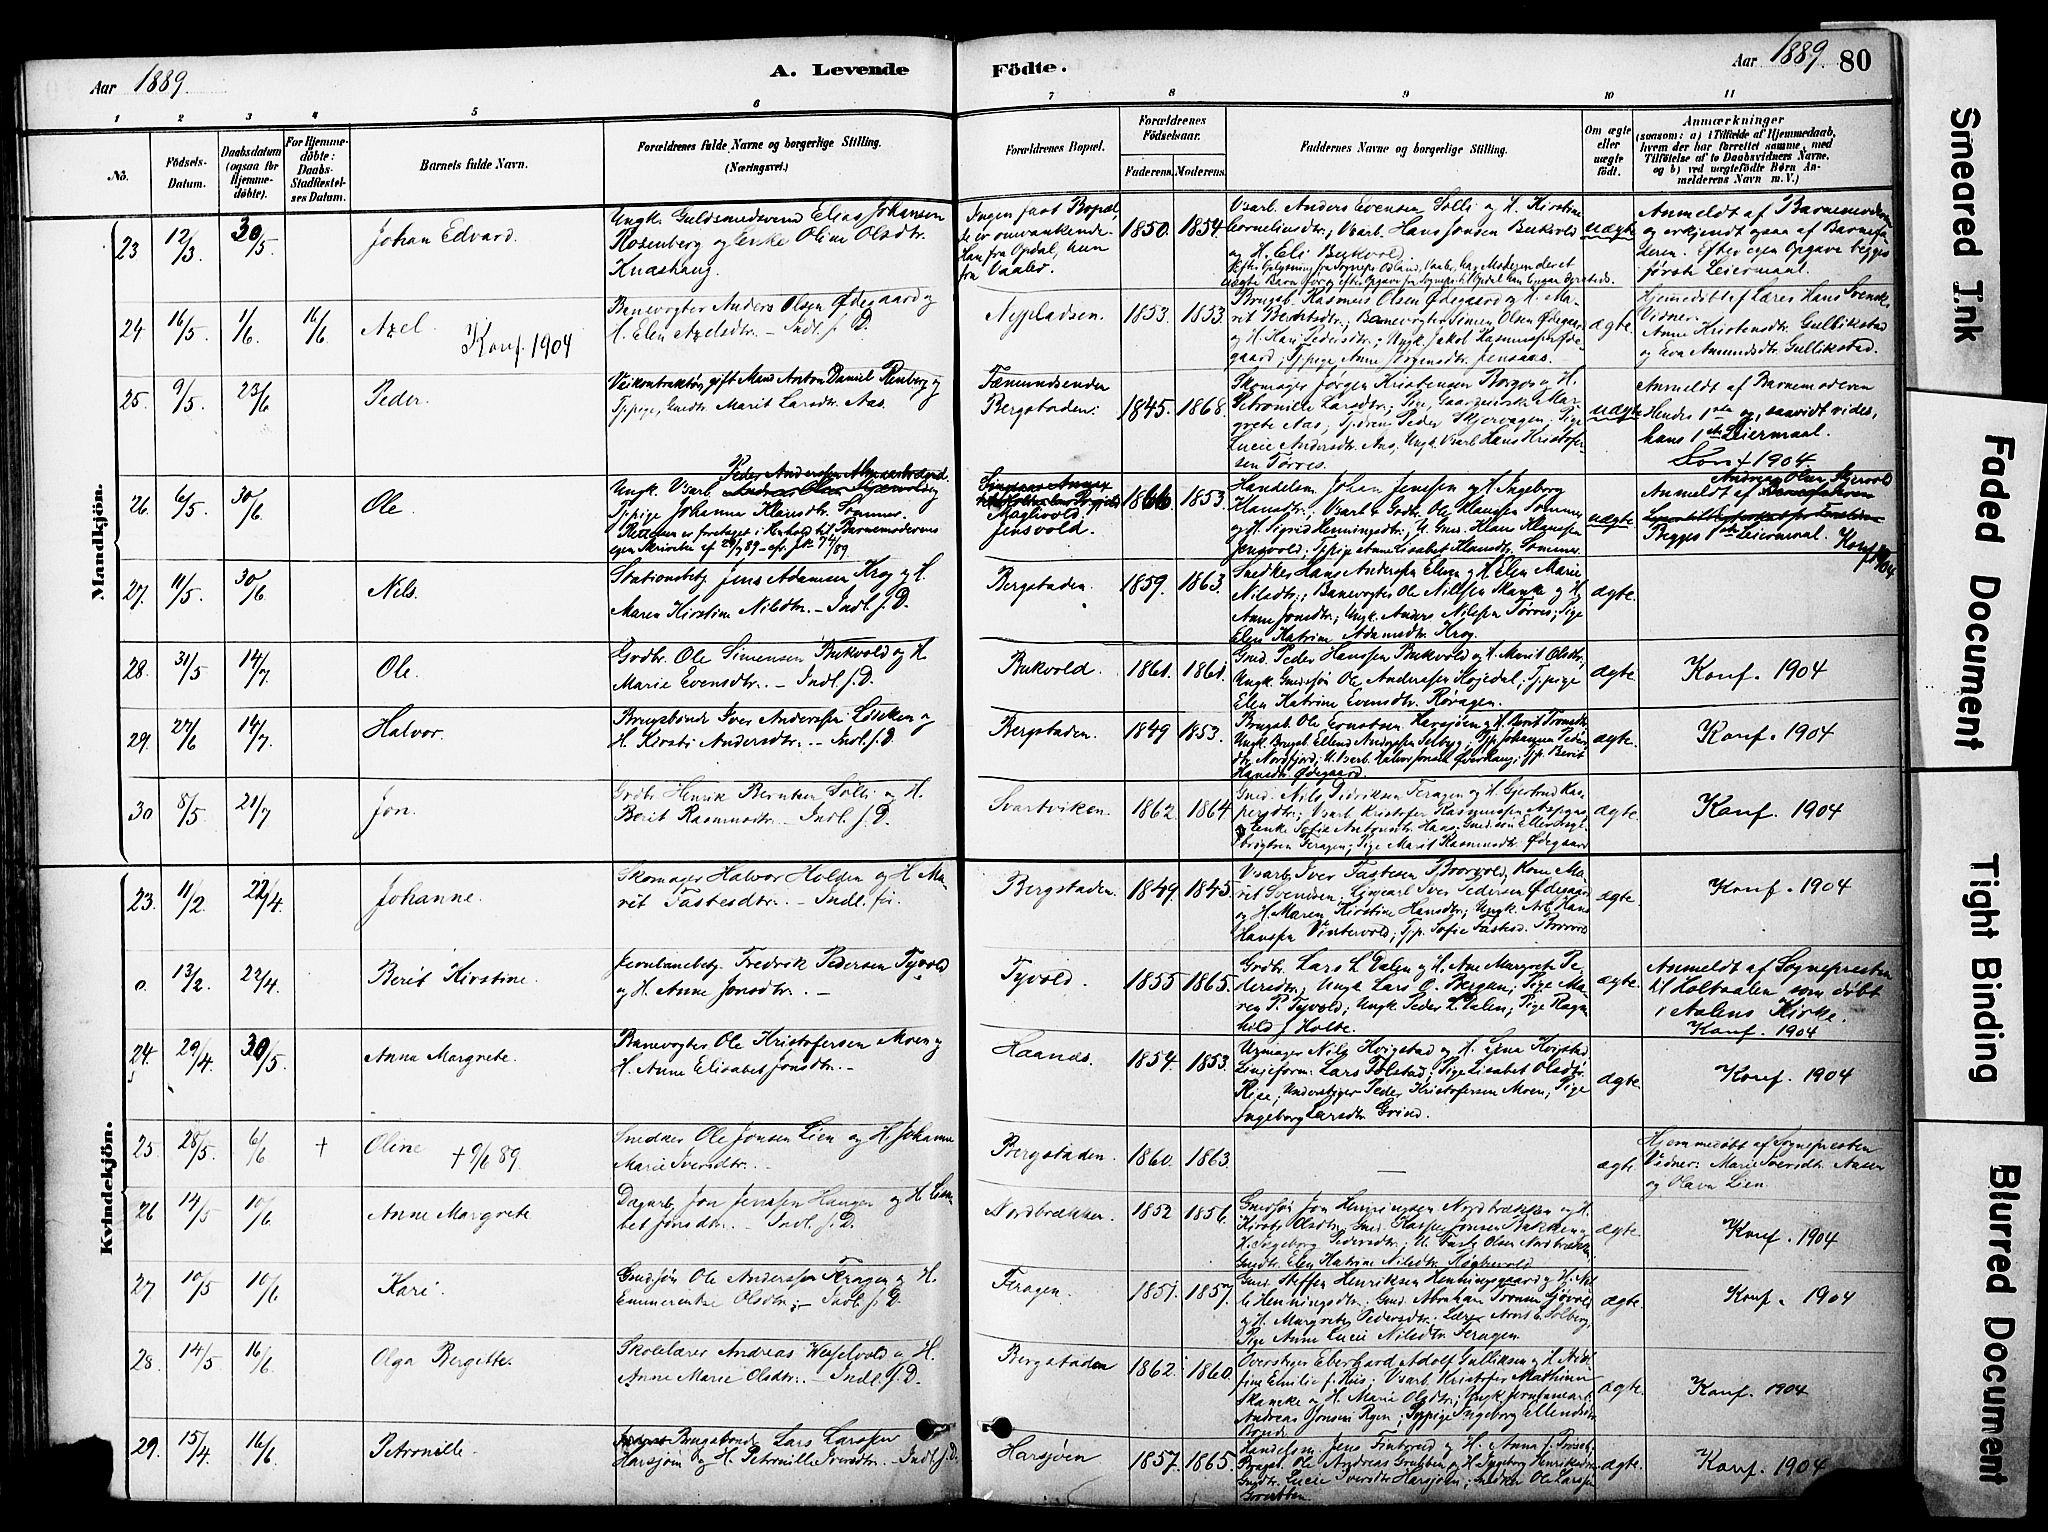 Aar 1889.
A. Levende
Födte.
Aar 1889.
80
1 2 3 4 5 6 7 8 9 10 11
No.
Födsels-Datum.
Daabsdatum (ogsaa for Hjemme-döbte).
For Hjemme-döbte: Daabs-Stadfæstel-ses Datum.
Barnets fulde Navn.
Forældrenes fulde Navne og borgerlige Stilling. (Næringsvei.)
Forældrenes Bopæl.
Forældrenes Födselsaar.
Faderens. Moderens.
Faddernes Navne og borgerlige Stilling.
Om ægte eller uægte födt.
Anmærkninger
(saasom: a) i Tilfælde af Hjemmedaab, hvem der har forrettet samme, med Tilföielse af to Daabsvidners Navne, og b) ved uægtefödte Børn Anmelderens Navn m. V.)
Mandkjön.
23 12/3 30/5 Johan Edvard.
Ungk. Guldsmedsvend Elias Johansen
Rosenberg og Enke Oline Olsdtr.
Knashaug.
Ingen fast Bopæl, de er omvankende. Han fra Opdal, hun fra Vaaler.
1850. 1854.
Vsarb. Anders Evensen Solli og H. Kirstine
Corneliusdtr.; Vsarb. Hans Jonsen Bukvold
og H. Eli Bukvold.
uægte
Anmeldt af Barnemoderen
og erkjendt ogsaa af Barnefa-
deren. Efter egen Opgave begges
første Leiermaal.
24 16/5 1/6 16/6 Axel. Konf. 1904
Banevogter Anders Olsen Ødegaard og
H. Elen Axelsdtr. – Indl. f. D.
Nypladsen. 1853. 1853.
Brugsb. Rasmus Olsen Ødegaard og H. Ma-
rit Berntsdtr.; Banevogter Simen Olsen Ødegaard
og H. Kari Pedersdtr.; Ungk. Jakob Rasmussen Øde-
gaard; Tjpige Anne Jørgensdtr. Jensaas.
ægte
Hjemmedöbt af Lærer Hans Svensk.
Vidner:
Anne Kirstensdtr. Gullikstad
og Eva Amundsdtr. Gullikstad.
25. 9/5. 23/6 Peder.
Veikontraktør, gift Mand Anton Daniel Renberg og
Tjpige, Gmdtr. Marit Larsdtr. Aas.
Fæmundsenden
Bergstaden. 1845. 1868.
Skomager Jørgen Kristensen Borgos og H.
Petronille Larsdtr.;
grete Aas; Tjdreng Peder Skjervagen; Pige
Lucie Andersdtr. Aas; Ungk. Vsarb. Hans Kristofer-
sen Tørres.
uægte
Anmeldt af Barnemoderen
Hendes 1ste og, saavidt vides,
hans 1ste Leiermaal.
Konf 1904
26. 6/5. 30/6 Ole.
Ungk. Vsarb.
Tjpige Johanna Klausdtr. Sommer.
Rettelsen er foretaget i Henhold til Barnemoderens
egen Skrivelse af 29/7 89 – cfr. Jk. 74/89
Jensvold.
1866 1853.
Handelsm. Johan Jenssen og H. Ingeborg
Klausdtr.; Vsarb. Godtr. Ole Klausen Sommer
og H. Sigrid Henningsdtr.; U. Gmd. Klaus Klausen
Jensvold; Tjpige Anne Lisabet Klausdtr. Sommer.
uægte.
Andreas Olsen Skjervold
Anmeldt af
Begges 1ste Leiermaal. Konf 1904
27. 11/5. 30/6 Nils.
Stationsbetj. Jens Adamsen Krog og H.
Maren Kirstine Nilsdtr. – Indl. f. D.
Bergstaden. 1859. 1863.
Snedker Hans Anderssen Elven og H. Elen Marie
Nilsdtr.; Banevogter Ole Nilssen Skanke og H.
Anne Jonsdtr.; Ungk. Anders Nilssen Tørres; Pige
Elen Katrine Adamsdtr. Krog.
ægte.
28. 31/5 14/7 Ole.
Grdbr. Ole Simensen Bukvold og H.
Marie Evensdtr. – Indl. f. D.
Bukvold. 1861. 1861.
Gmd. Peder Hanssen Bukvold og H. Marit Olsdtr.;
Ungk. Gmdssøn Ole Anderssen Høsedal; Tjpige
Elen Katrine Evensdtr. Røragen.
ægte. Konf. 1904
29. 27/6 14/7. Halvor.
Brugsbonde Iver Anderssen Løseken og
H. Kirsti Andersdtr. – Indl. f. D.
Bergstaden. 1849 1853.
Brugsb. Ole Ernstsen Harsjøen og H. Berit
Ungk. Brugsb. Ellend Anderssen Selbyg; Tjp. Johanna Peders-
dtr. Nordfjord; U. Vsarb. Halvor Jonsen Øverhaug; Tjp. Berit
Hansdtr. Ødegaard.
ægte. Konf. 1904
30 8/5 21/7 Jon.
Grdbr. Henrik Berntsen Solli og H.
Berit Rasmusdtr. – Indl. f. D.
Svartviken. 1862. 1864
Gmd. Nils Didriksen Feragen og H. Gjertrud Kas-
persdtr.; Vsarb. Kristofer Rasmussen Aspaas
Enke Sofie Antonsdtr.
Feragen; Pige Marit Rasmusdtr. Ødegaard
ægte. Konf. 1904
Kvindekjön.
23. 11/2. 22/4 Johanne.
Skomager Halvor Holden og H. Ma-
rit Tastesdtr. – Indl. før.
Bergstaden. 1849. 1845.
Vsarb. Iver Tastesen Broevold; Kone Ma-
rit Svendsen; Iver Pedersen Ødegaard
og H. Maren Kirstine Hansdtr.; Ungk. Arb. Hans
Hanssen Vintervold; Tjp. Sofie Tastesd. Broevold
ægte. Konf. 1904
0. 13/2. 22/4. Berit Kirstine.
Jernbanebetj. Fredrik Pedersen Tyvold
og H. Anne Jonsdtr. –
Tyvold. 1855 1865.
Grdbr. Lars L. Dalen og H. Ane Margrete Pe-
dersdtr.; Ungk. Lars O. Bergan; Pige Ma-
ren P. Tyvold; Ungk. Peder L. Dalen; Pige Ragn-
hild J. Holte.
ægte.
Anmeldt af Sognepresten
til Holtaalen som döbt
i Aalens Kirke.
Konf. 1904
24. 29/4 30/5 Anna Margrete.
Banevogter Ole Kristofersen Moen og
H. Anne Elisabet Jonsdtr. –
Haanes. 1854. 1853.
Urmager Nils Kvigstad og H. Lena Kvigstad
Linjeform. Lars Folstad; Pige Lisabet Olsdtr.
Rise; Understiger Peder Kristofersen Moen; Pige
Ingeborg Larsdtr. Grind.
ægte. Konf. 1904
25. 28/5. 6/6 † Oline † 9/6 89.
Snedker Ole Jonsen Lien og H. Johanne
Marie Iversdtr. –
Bergstaden. 1860. 1863. —
ægte
Hjemmedöbt af Sognepresten
Vidner: Marie Iversdtr. Aasen
og Olava Lien.
26 14/5 10/6 Anne Margrete
Dagarb. Jon Jenssen Haugen og H. Lisa-
bet Jonsdtr. – Indl. f. D.
Nordbrækken. 1852 1856.
Gmdssøn Jon Henningsen Nordbrækken og H.
Kirsti Olsdtr.; Gmd. Kasper Jonsen Bukken og
H. Ingeborg Pedersdtr.; U. Olsen Nordbrækken;
Gmdtr. Elen Katrine Nilsdtr.
ægte. Konf. 1904
27 10/5 10/6 Kari.
Gmdssøn Ole Anderssen Feragen og H.
Emmerentse Olsdtr. – Indl. f. D.
Feragen. 1851. 1857.
Gmd. Steffen Henriksen Henningsgaard og H.
Henningsdtr.; Gmd. Abraham Tronsen Gjøsvold
og H. Margrete Pedersdtr.; Lærer Arnt E. Solberg,
Pige Anne Lucie Nilsdtr. Feragen.
ægte. Konf. 1904
28. 14/5. 16/6. Olga Bergitte.
Skolelærer Andreas Wesselvold og H.
Anne Marie Olsdtr. – Indl. f. D.
Bergstaden 1862. 1860.
Overstiger Eberhard Adolf Gulliksen og H.
fine Emilie f. Riis; Vsarb. Kristofer Mathisen
Skancke og H. Marie Olsdtr.; Ungk.
Andreas Jonsen Ryen; Tjpige Ingeborg Ellendsdtr.
ægte Konf. 1904
29. 15/4 16/6. Petronille.
Brugsbonde Lars Larssen
Harsjøen og H. Petronille Iversdtr. – Indl. f. D.
Harsjøen 1857. 1865.
Handelsm. Jens Finborud og H. Anna
Brugsb. Ole Andreas Grubben og H. Ingeborg Henriksdtr.
Gmdtr. Lucie Iversdtr. Harsjøen; Snedker Ole Larssen
ægte. Konf. 1904
Smeared Ink
Faded Document
Tight Binding
Blurred Document